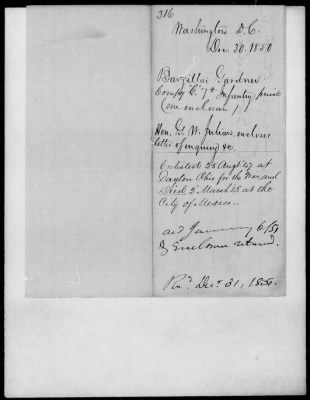 316
Washington D.C.
Dec. 30. 1850
Barzillai Gardner
Compy C. 7th Infantry, private
(one enclosure)
Hon. G. W. Julian, encloses
letter of enquiry &c.
Enlisted 25 Augt 47 at
Dayton Ohio for the War, and
Died 5 March 48 at the
City of Mexico.
ansd January 6/51
& Enclosure returned.
Recd. Decr. 31, 1850.